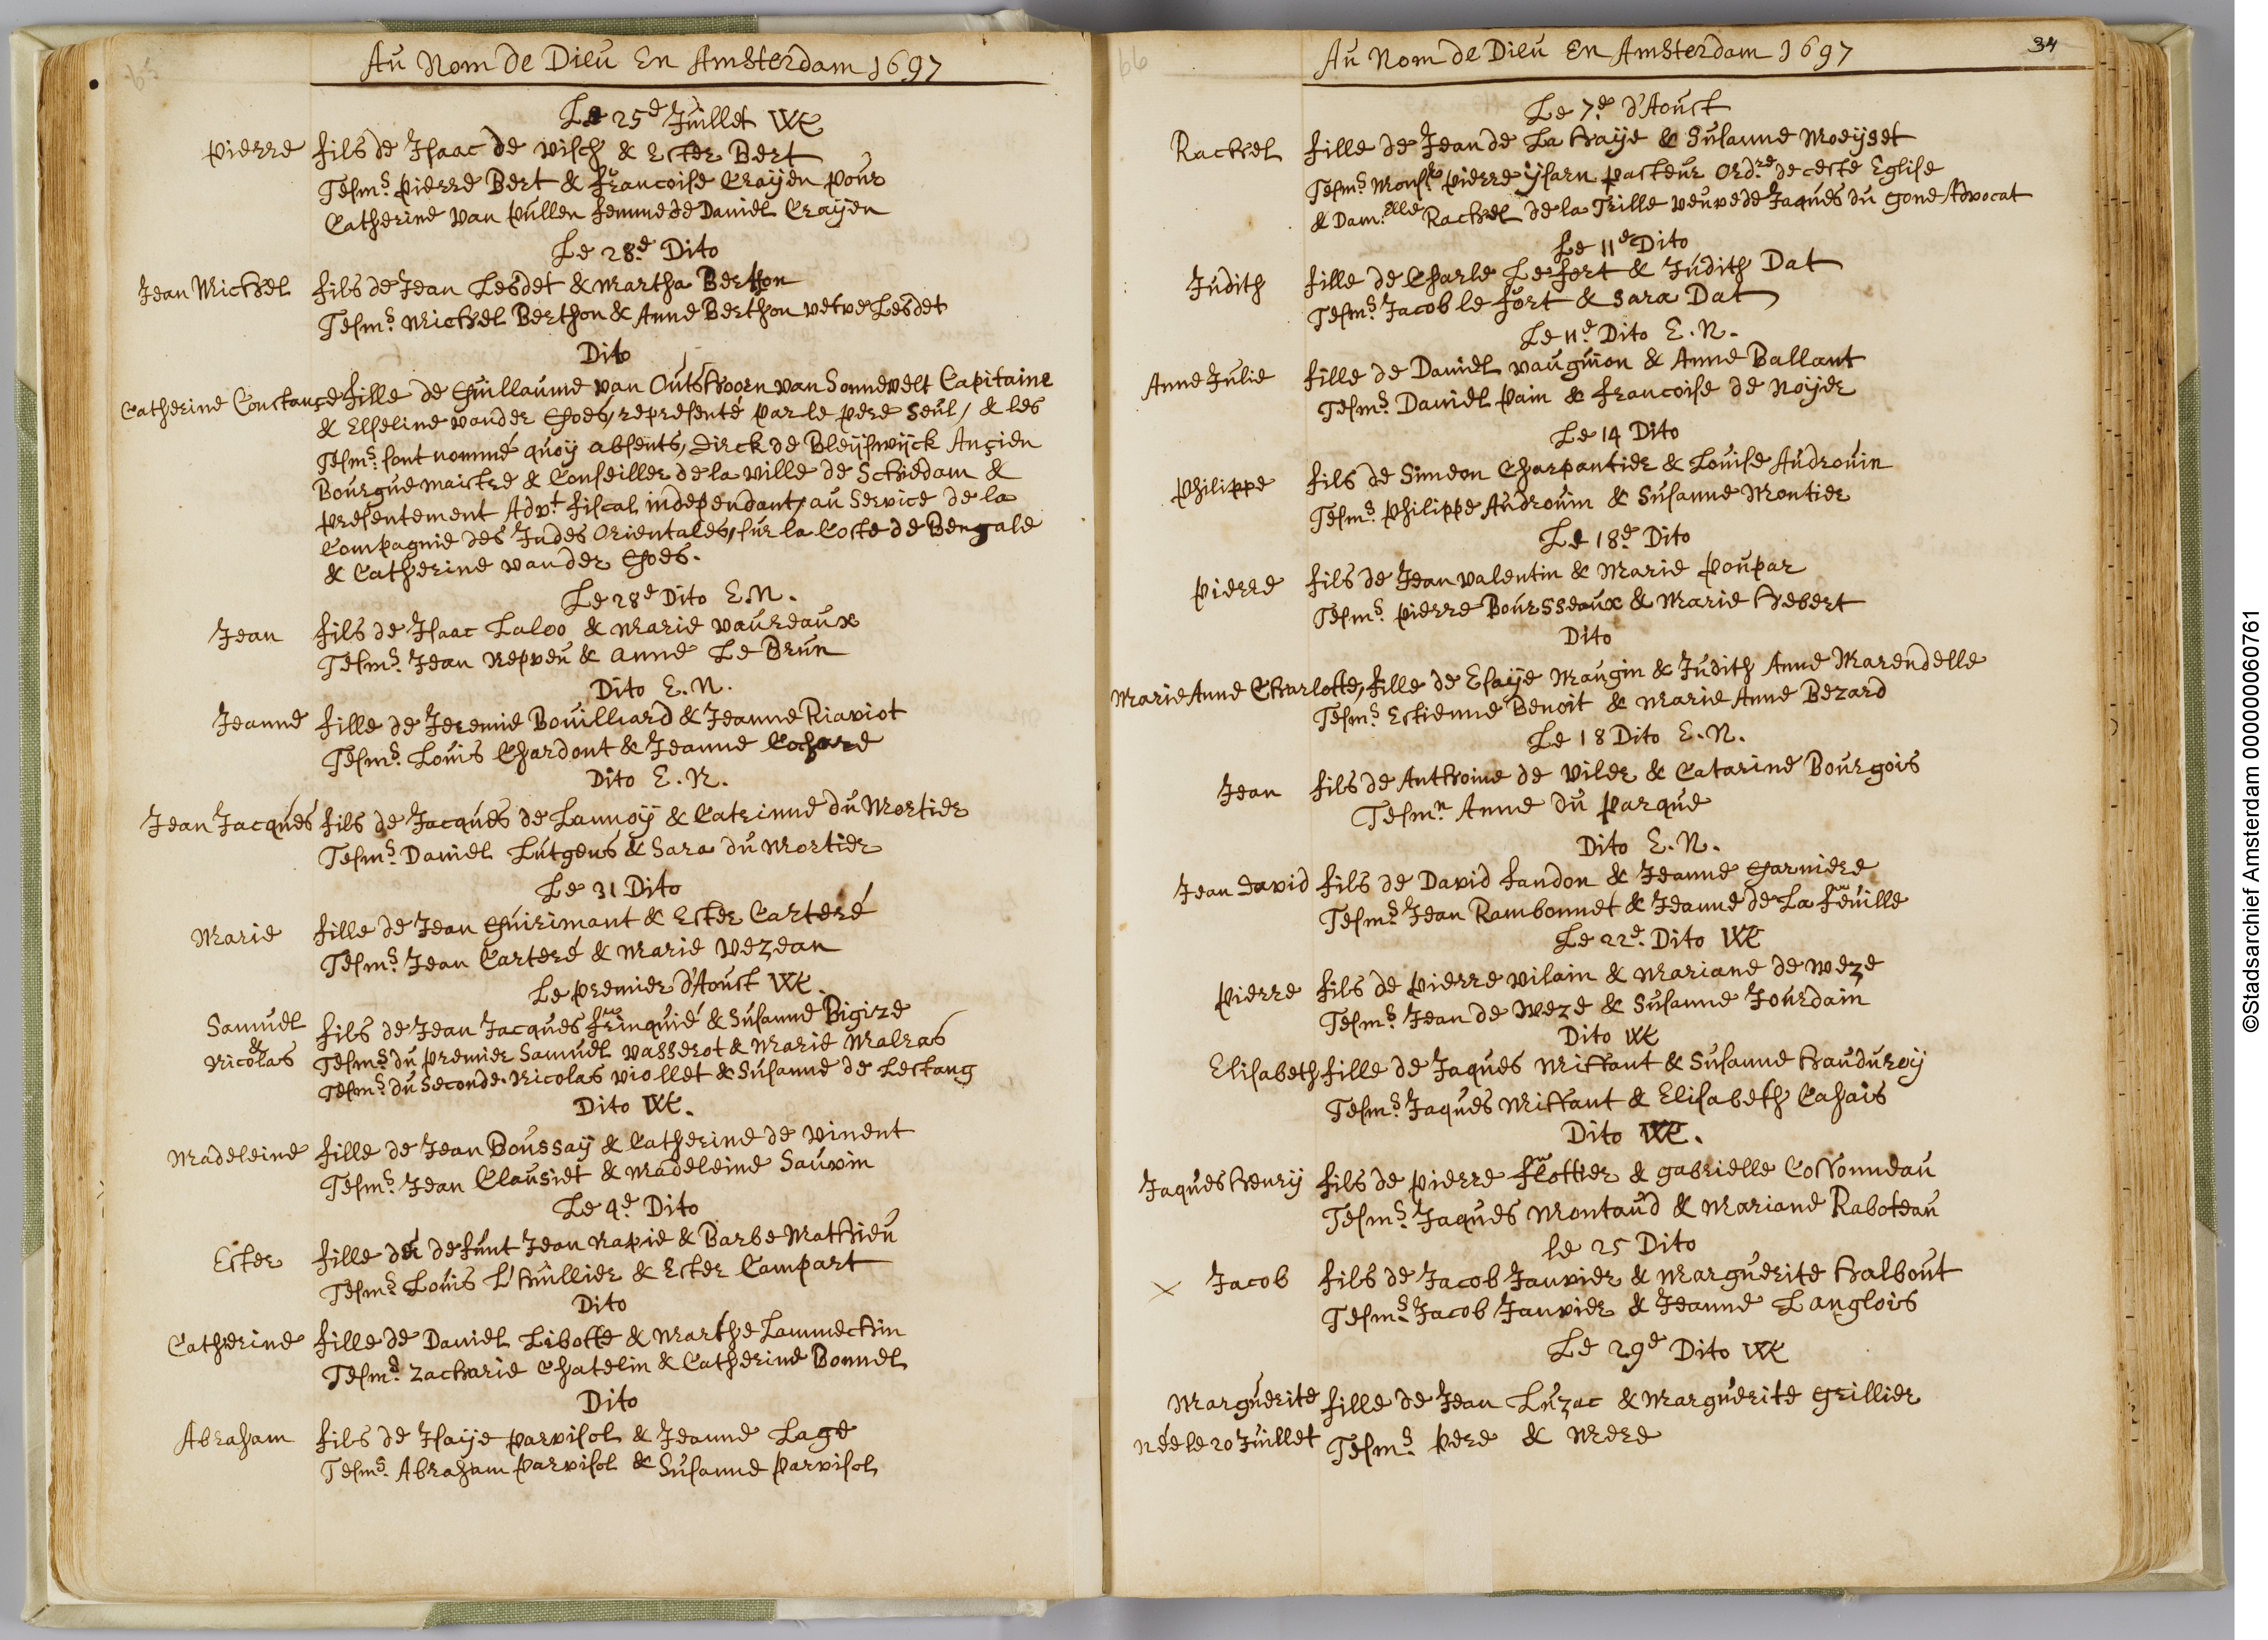 65
Au Nom de Dieu En Amsterdam 1697
Le 25.d Juillet WK
Pierre fils de Isaac de visch & Ester Bert
Tesm.s Pierre Bert & francoise Craijen pour
Catherine van Pullen femme de Daniel Craijen
Le 28.d Dito
Jean Michel fils de Jean Lesdet & Martha Berthon
Tesm.s Michel Berthon & Anne Berthon vefve Lesdet
Dito
Catherine Constançe fille de Guillaume van Outshoorn van Sonnevelt Capitaine
& Elseline vander Goes, representé par le pere seul, & les
Tesm.s sont nommé quoy absents, Dirck de Bleijswijck Ançien
Bourguemaistre & Conseiller de la ville de Schiedam &
presentement Adv.t fiscal independant, au Service de la
Compagnie des Indes Orientales, sur la Coste de Bengale
& Catherine vander Goes.
Le 28.d Dito E.N.
Jean fils de Isaac Laloo & Marie vaureaux
Tesm.s Jean Nepveu & anne Le Brun
Dito E.N.
Jeanne fille de Jeremie Bouilliard & Jeanne Riaviot
Tesm.s Louis Chardont & Jeanne Cochard
Dito E.N.
Jean Jacques fils de Jacques de Lannoij & Catrinne du Mortier
Tesm.s Daniel Lutgens & Sara du Mortier
Le 31 Dito
Marie fille de Jean Guirimant & Ester Carteré
Tesm.s Jean Carteré & Marie Vezean
Le premier d'Aoust WK.
Samuel & Nicolas fils de Jean Jacques frinquié & Susanne Bigire
Tesm.s du premier Samuel vasserot & Marie Malras
Tesm.s du Seconde. Nicolas viollet & Susanne de Lestang
Dito WK.
Madeleine fille de Jean Boussaij & Catherine de Vinent
Tesm.s Jean Clausiet & Madeleine Sauvin
Le 4.d Dito
Ester fille de defunt Jean Rapie & Barbe Mathieu
Tesm.s Louis L'huillier & Ester Campart
Dito
Catherine fille de Daniel Libotte & Marthe Lammechin
Tesm.s Zacharie Chatelin & Catherine Bonnel
Dito
Abraham fils de Isaije parvisol & Jeanne Lage
Tesm.s Abraham Parvisol & Susanne Parvisol
66
Au Nom de Dieu En Amsterdam 1697
34
Le 7.e d'Aoust
Rachel fille de Jean de La haije & Susanne Moeijset
Tesm.s Mons.r pierre ijsarn pasteur Ord.re de ceste Eglise
& Dam.elle Rachel de la Treille veuve de Jaques du gone Advocat
Le 11.e Dito
Judith fille de Charle Lefort & Judith Dat
Tesm.s Jacob le fort & Sara Dat
Le 11.d Dito E.N.
Anne Julie fille de Daniel vauguion & Anne Ballant
Tesm.s Daniel Pain & francoise de Noijer
Le 14 Dito
Philippe fils de Simeon Charpantier & Louise Androuin
Tesm.s Philippe Androuin & Susanne Montier
Le 18.e Dito
Pierre fils de Jean valentin & Marie Poupar
Tesm.s Pierre Boursseaux & Marie Hebert
Dito
Marie Anne Charlotte, fille de Esaije Maugin & Judith Anne Marendelle
Tesm.s Estienne Benoit & Marie Anne Bezard
Le 18 Dito E.N.
Jean fils de Anthoine de Viler & Catarine Bourgois
Tesm.n Anne du Parque
Dito E.N.
Jean David fils de David fandon & Jeanne Garniere
Tesm.s Jean Rambonnet & Jeanne de La feuille
Le 22.e Dito WK
Pierre fils de pierre vilain & Mariane de Weze
Tesm.s Jean de Weze & Susanne Jourdain
Dito WK
Elisabeth fille de Jaques Mithant & Susanne hauduroij
Tesm.s Jaques Mithant & Elisabeth Cahais
Dito WK.
Jaques Henrij fils de pierre flottier & gabrielle Cossonneau
Tesm.s Jaques Montaud & Mariane Raboteau
le 25 Dito
× Jacob fils de Jacob Janvier & Marguerite Halbout
Tesm.s Jacob Janvier & Jeanne Langlois
Le 29.e Dito WK
Marguerite fille de Jean Luzac & Marguerite Grillier
née le 20 Juillet Tesm.s Pere & Mere
©Stadsarchief Amsterdam 000000060761